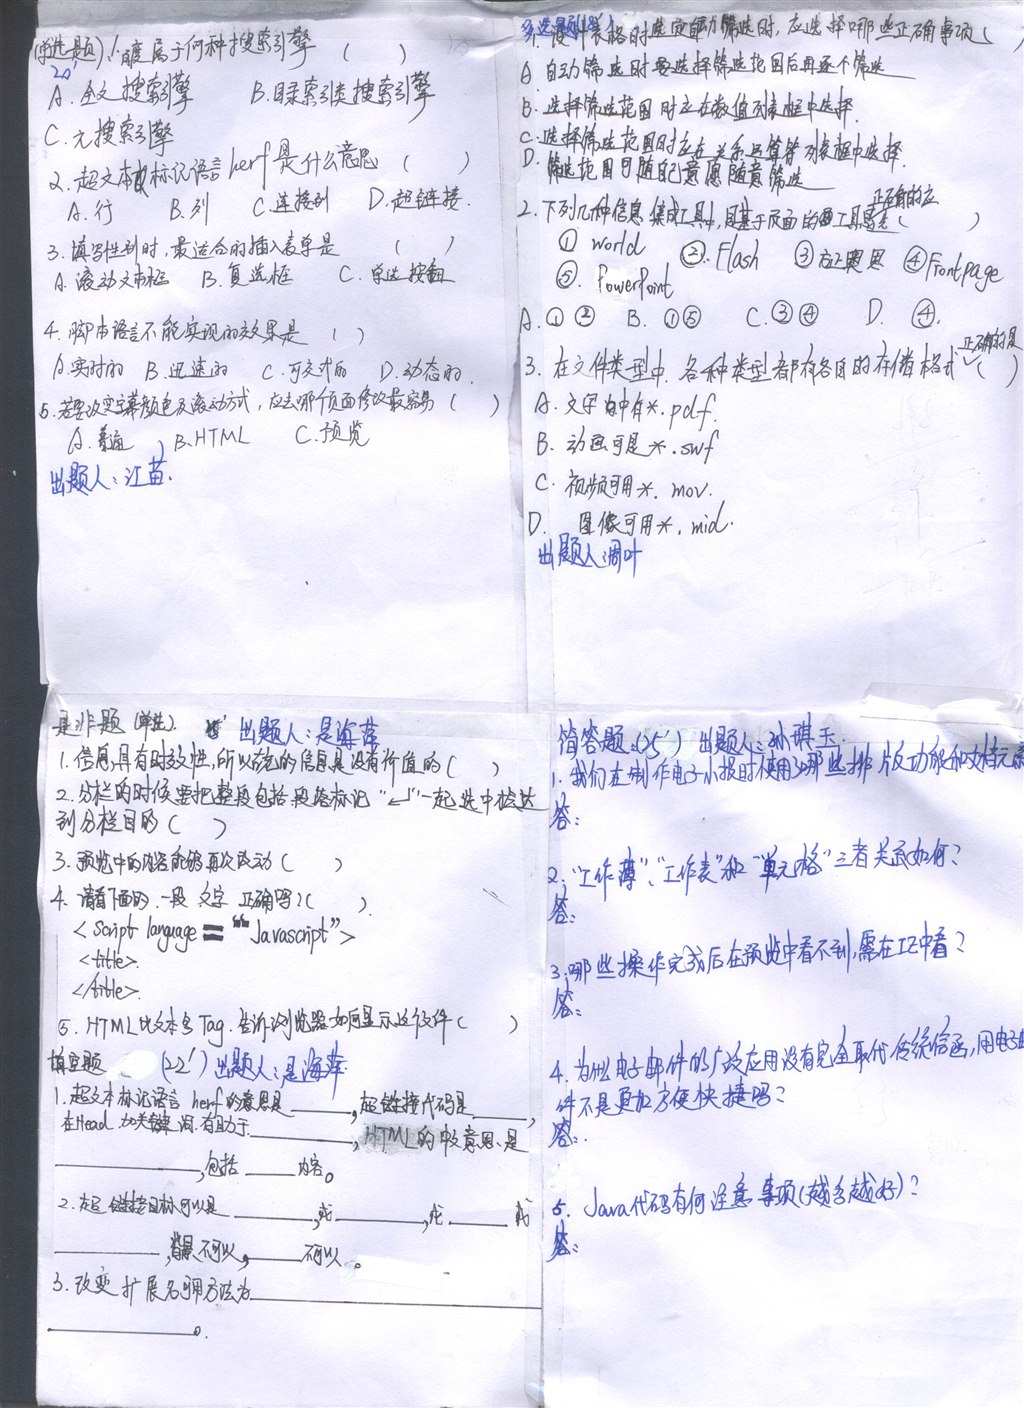 (单选题) 1. 属于何种搜索引擎 ( )
20'
A. 全文搜索引擎 B. 目录索引类搜索引擎
C. 元搜索引擎
2. 超文本标记语言 herf 是什么意思 ( )
A. 行 B. 列 C. 连接到 D. 超链接.
3. 填写性别时, 最适合的插入表单是 ( )
A. 滚动文本框 B. 复选框 C. 单选按钮
4. 脚本语言不能实现的效果是 ( )
A. 实时的 B. 迅速的 C. 可交式的 D. 动态的.
5. 若要改变字幕颜色及滚动方式, 应去哪个页面修改最容易 ( )
A. 普通 B. HTML C. 预览
出题人: 江苗.
多选题
1. 设计表格时选定自动筛选时, 应选择哪些正确事项 ( )
A. 自动筛选时要选择筛选范围后再逐个筛选
B. 选择筛选范围时应在数值列表框中选择.
C. 选择筛选范围时应在关系运算符列表框中选择.
D. 筛选范围可随自己意愿随意筛选
2. 下列几种信息集成工具中, 用基于页面的工具正确的应 ( )
① world ② Flash ③ 方正奥思 ④ Frontpage
⑤ PowerPoint
A. ① ② B. ① ⑤ C. ③ ④ D. ④.
3. 在文件类型中, 各种类型都有各自的存储格式正确的是 ( )
A. 文字中有 *.pdf.
B. 动画可是 *.swf
C. 视频可用 *.mov.
D. 图像可用 *.mid.
出题人: 周叶
是非题 (单选). 15' 出题人: 是海萍
1. 信息具有时效性, 所以旧的信息是没有价值的 ( )
2. 分栏的时候需把整段包括段落标记 "↵" 一起选中才能达
到分栏目的 ( )
3. 预览中的内容能够再次改动 ( )
4. 请看下面的一段文字正确吗? ( )
< Script language = “Javascript”>
<title>.
</title>.
5. HTML 比文本多 Tag. 告诉浏览器如何显示这个文件 ( )
填空题 (22') 出题人: 是海萍
1. 超文本标记语言 herf 的意思是 ____, 超链接代码是 ____,
在Head 加关键词, 有助于 ____, HTML的中文意思是
____, 包括 ____ 内容。
2. 超链接目标可以是 ____, 或 ____, 或 ____ 或
____, 背景不可以, ____ 不可以。
3. 改变扩展名可用方法为 ____
____。
简答题: (25') 出题人: 孙琪玉
1. 我们在制作电子小报时使用了哪些排版功能和文档元素
答:
2. “工作薄”、“工作表”和“单元格”三者关系如何?
答:
3. 哪些操作完成后在预览中看不到, 需在IE中看?
答:
4. 为什么电子邮件的广泛应用没有完全取代传统信函, 用电子邮
件不是更加方便快捷吗?
答:
5. Java代码有何注意事项 (越多越好)?
答: